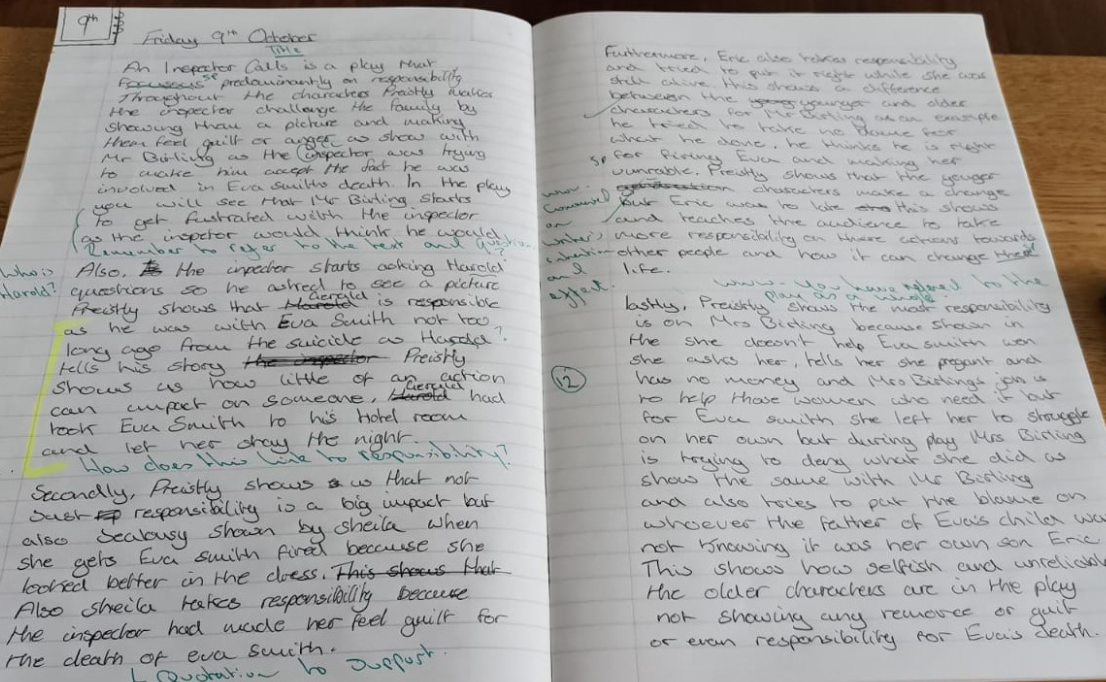 9th
Friday 9th October
Title
An Inspector Calls is a play that
sp predominantly on responsibility
Throughout the characters Preistly makes
the inspector challenge the family by
showing them a picture and making
them feel guilt or anger as show with
Mr Birling as the inspector was trying
to make him accept the fact he was
involved in Eva Smiths death. In the play
you will see that Mr Birling starts
to get fustrated with the inspector
as the inspetor would think he would
Remember to refer to the text and question
Also, the inpector starts asking Harold
Who is Harold?
questions so he asked to see a picture
Preistly shows that Harold Gerald is responsible
as he was with Eva Smith not too
long ago from the suicide as Harold?
tells his story the inspector Preistly
shows us how little of an action
can impact on someone, Harold Gerald had
took Eva Smith to his Hotel room
and let her stay the night.
How does this link to responsibility?
Secondly, Preistly shows us that not
Just responsibility is a big impact but
also Jealousy shown by sheila when
she gets Eva smith fired because she
looked better in the dress. This shows that
Also sheila takes responsibility because
the inspector had made her feel guilt for
the death of eva smith.
Quotation to support.
Furthermore, Eric also takes responsibility
and tried to put it right while she was
still alive this shows a difference
between the young younger and older
characters for Mr Birling as an example
he tried to take no blame for
what he done, he thinks he is right
sp for fireing Eva and making her
vunrable. Preistly shows that the younger
characters make a change
www. Comment on writer's intention and effect.
but Eric was to late this shows
and teaches the audience to take
more responsibility on there actions towards
other people and how it can change there
life.
www - You have referred to the
play as a whole.
lastly, Preistly shows the most responsibility
is on Mrs Birling because shown in
the she doesn't help Eva smith won
she asks her, tells her she pregant and
12
has no money and Mrs Birlings job is
to help those women who need it but
for Eva smith she left her to struggle
on her own but during play Mrs Birling
is trying to deny what she did as
show the same with Mr Birling
and also tries to put the blame on
whoever the father of Eva's child was
not knowing it was her own son Eric
This shows how selfish and unreliable
the older characters are in the play
not showing any remorce or guilt
or even responsibility for Eva's death.